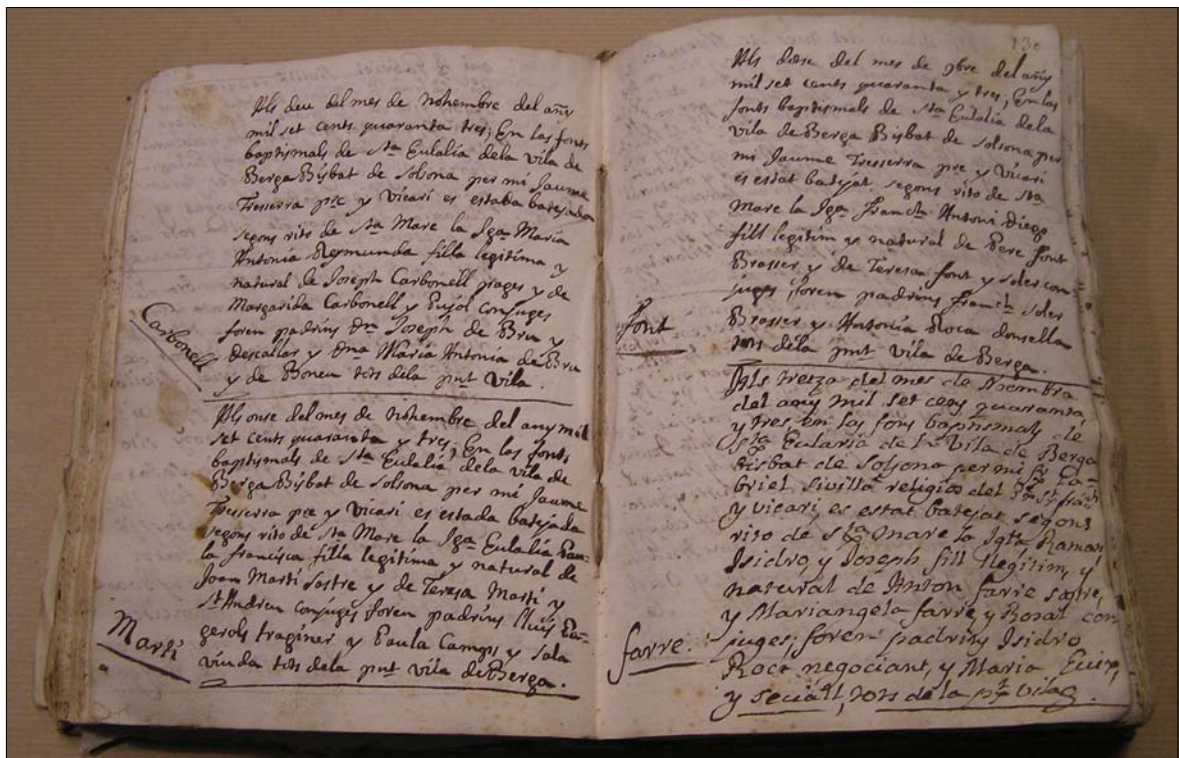 Als deu del mes de Nohembre del añy
mil set cents quaranta tres; En las fonts
baptismals de Sta Eulalia dela vila de
Berga Bisbat de Solsona per mi Jaume
Tresserra pre y vicari es estada batejada
segons rito de Sta Mare la Iga Maria
Antonia Remunda filla legitima y
natural de Joseph Carbonell pages y de
Margarida Carbonell y Pujol conjuges
foren padrins Dn Joseph de Bru y
Descallar y Dna Maria Antonia de Bru
y de Boneu tots dela pnt vila.
Carbonell
Als onse del mes de Nohembre del any mil
set cents quaranta y tres; En las fonts
baptismals de Sta Eulalia dela vila de
Berga Bisbat de Solsona per mi Jaume
Tresserra pre y vicari es estada batejada
segons rito de Sta Mare la Iga Eulalia Pau-
la Francisca filla legitima y natural de
Joan Marti Sastre y de Teresa Marti y
St Andreu conjuges foren padrins Lluis
gerols traginer y Paula Camps y Sala
viuda tots dela pnt vila de Berga.
Marti
130
Als dose del mes de 9bre del añy
mil set cents quaranta y tres; En las
fonts baptismals de Sta Eulalia dela
vila de Berga Bisbat de Solsona per
mi Jaume Tresserra pre y vicari
es estat batejat segons rito de Sta
Mare la Iga Franch Antoni Diego
fill legitim y natural de Pere font
Brasser y de Teresa font y Soler con-
juges foren padrins Franch Soler
Brasser y Antonia Roca donsella
tots dela pnt vila de Berga.
font
Als tretza del mes de Nombra
del any mil set cens quaranta
y tres en las fons baptismals de
Sta Eularia de la Vila de Berga
Bisbat de Solsona per mi fr Ga-
briel Sivilla religios del St
y vicari, es estat batejat segons
rito de Sta mare la Igta Ramon
Isidro, y Joseph fill llegitim, y
natural de Anton farre sastre,
y Mariangela farre, y Rosat con
juges; foren padrins Isidro
Roca negociant, y Maria
y tots de la pt vila
farre.